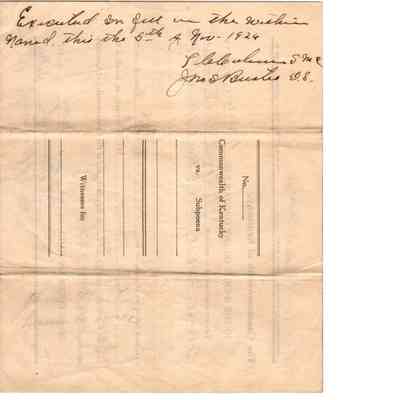 Executed in full on the within
Named, this the 5th of Nov. 1924
S.M.C
D.S.
No.
Commonwealth of Kentucky
vs. Subpoena
Witnesses for